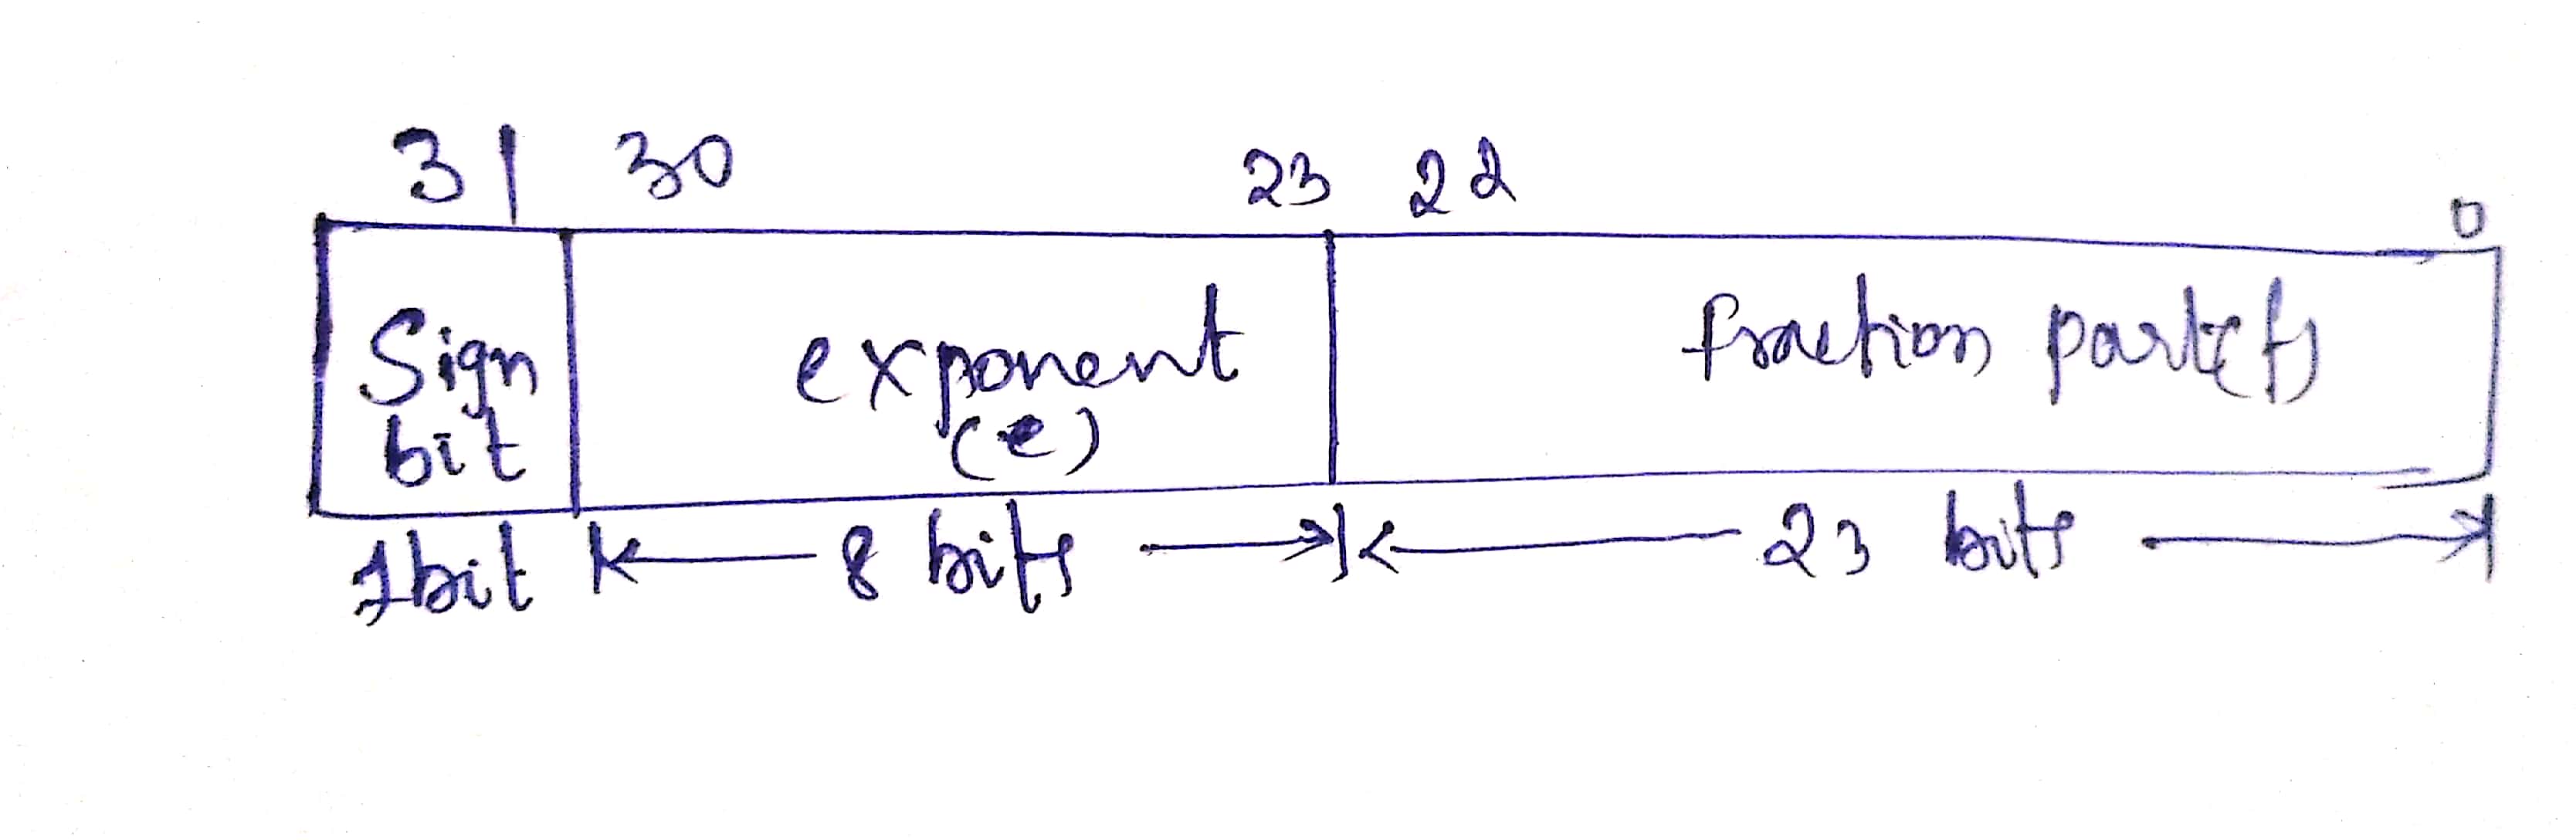 31 30 23 22 0
Sign bit
exponent (e)
fraction part(f)
1bit 8 bits 23 bits